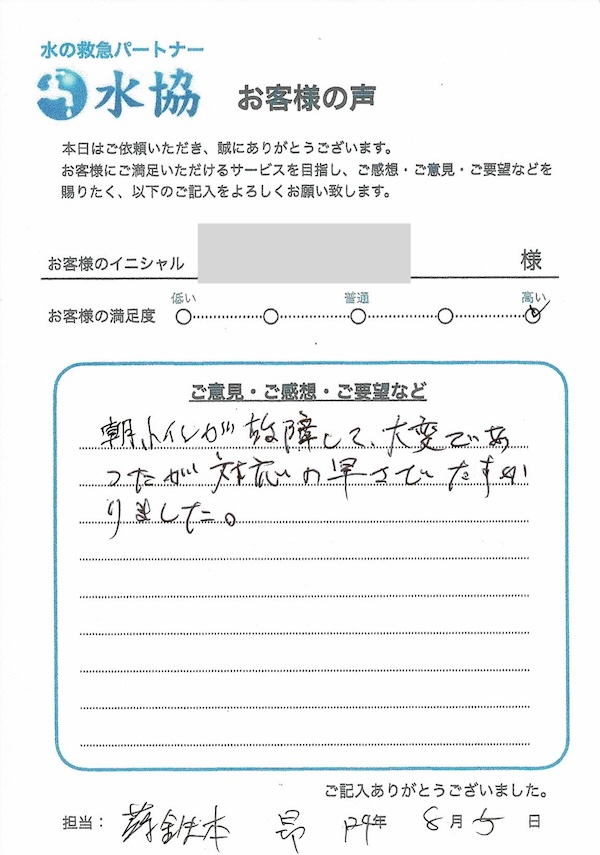 水の救急パートナー
水協 お客様の声
本日はご依頼いただき、誠にありがとうございます。
お客様にご満足いただけるサービスを目指し、ご感想・ご意見・ご要望などを
賜りたく、以下のご記入をよろしくお願い致します。
お客様のイニシャル 様
低い 普通 高い
お客様の満足度
ご意見・ご感想・ご要望など
朝トイレが故障して、大変であ
ったが対応の早さでたすか
りました。
ご記入ありがとうございました。
担当: 本 昂 年 8月5日